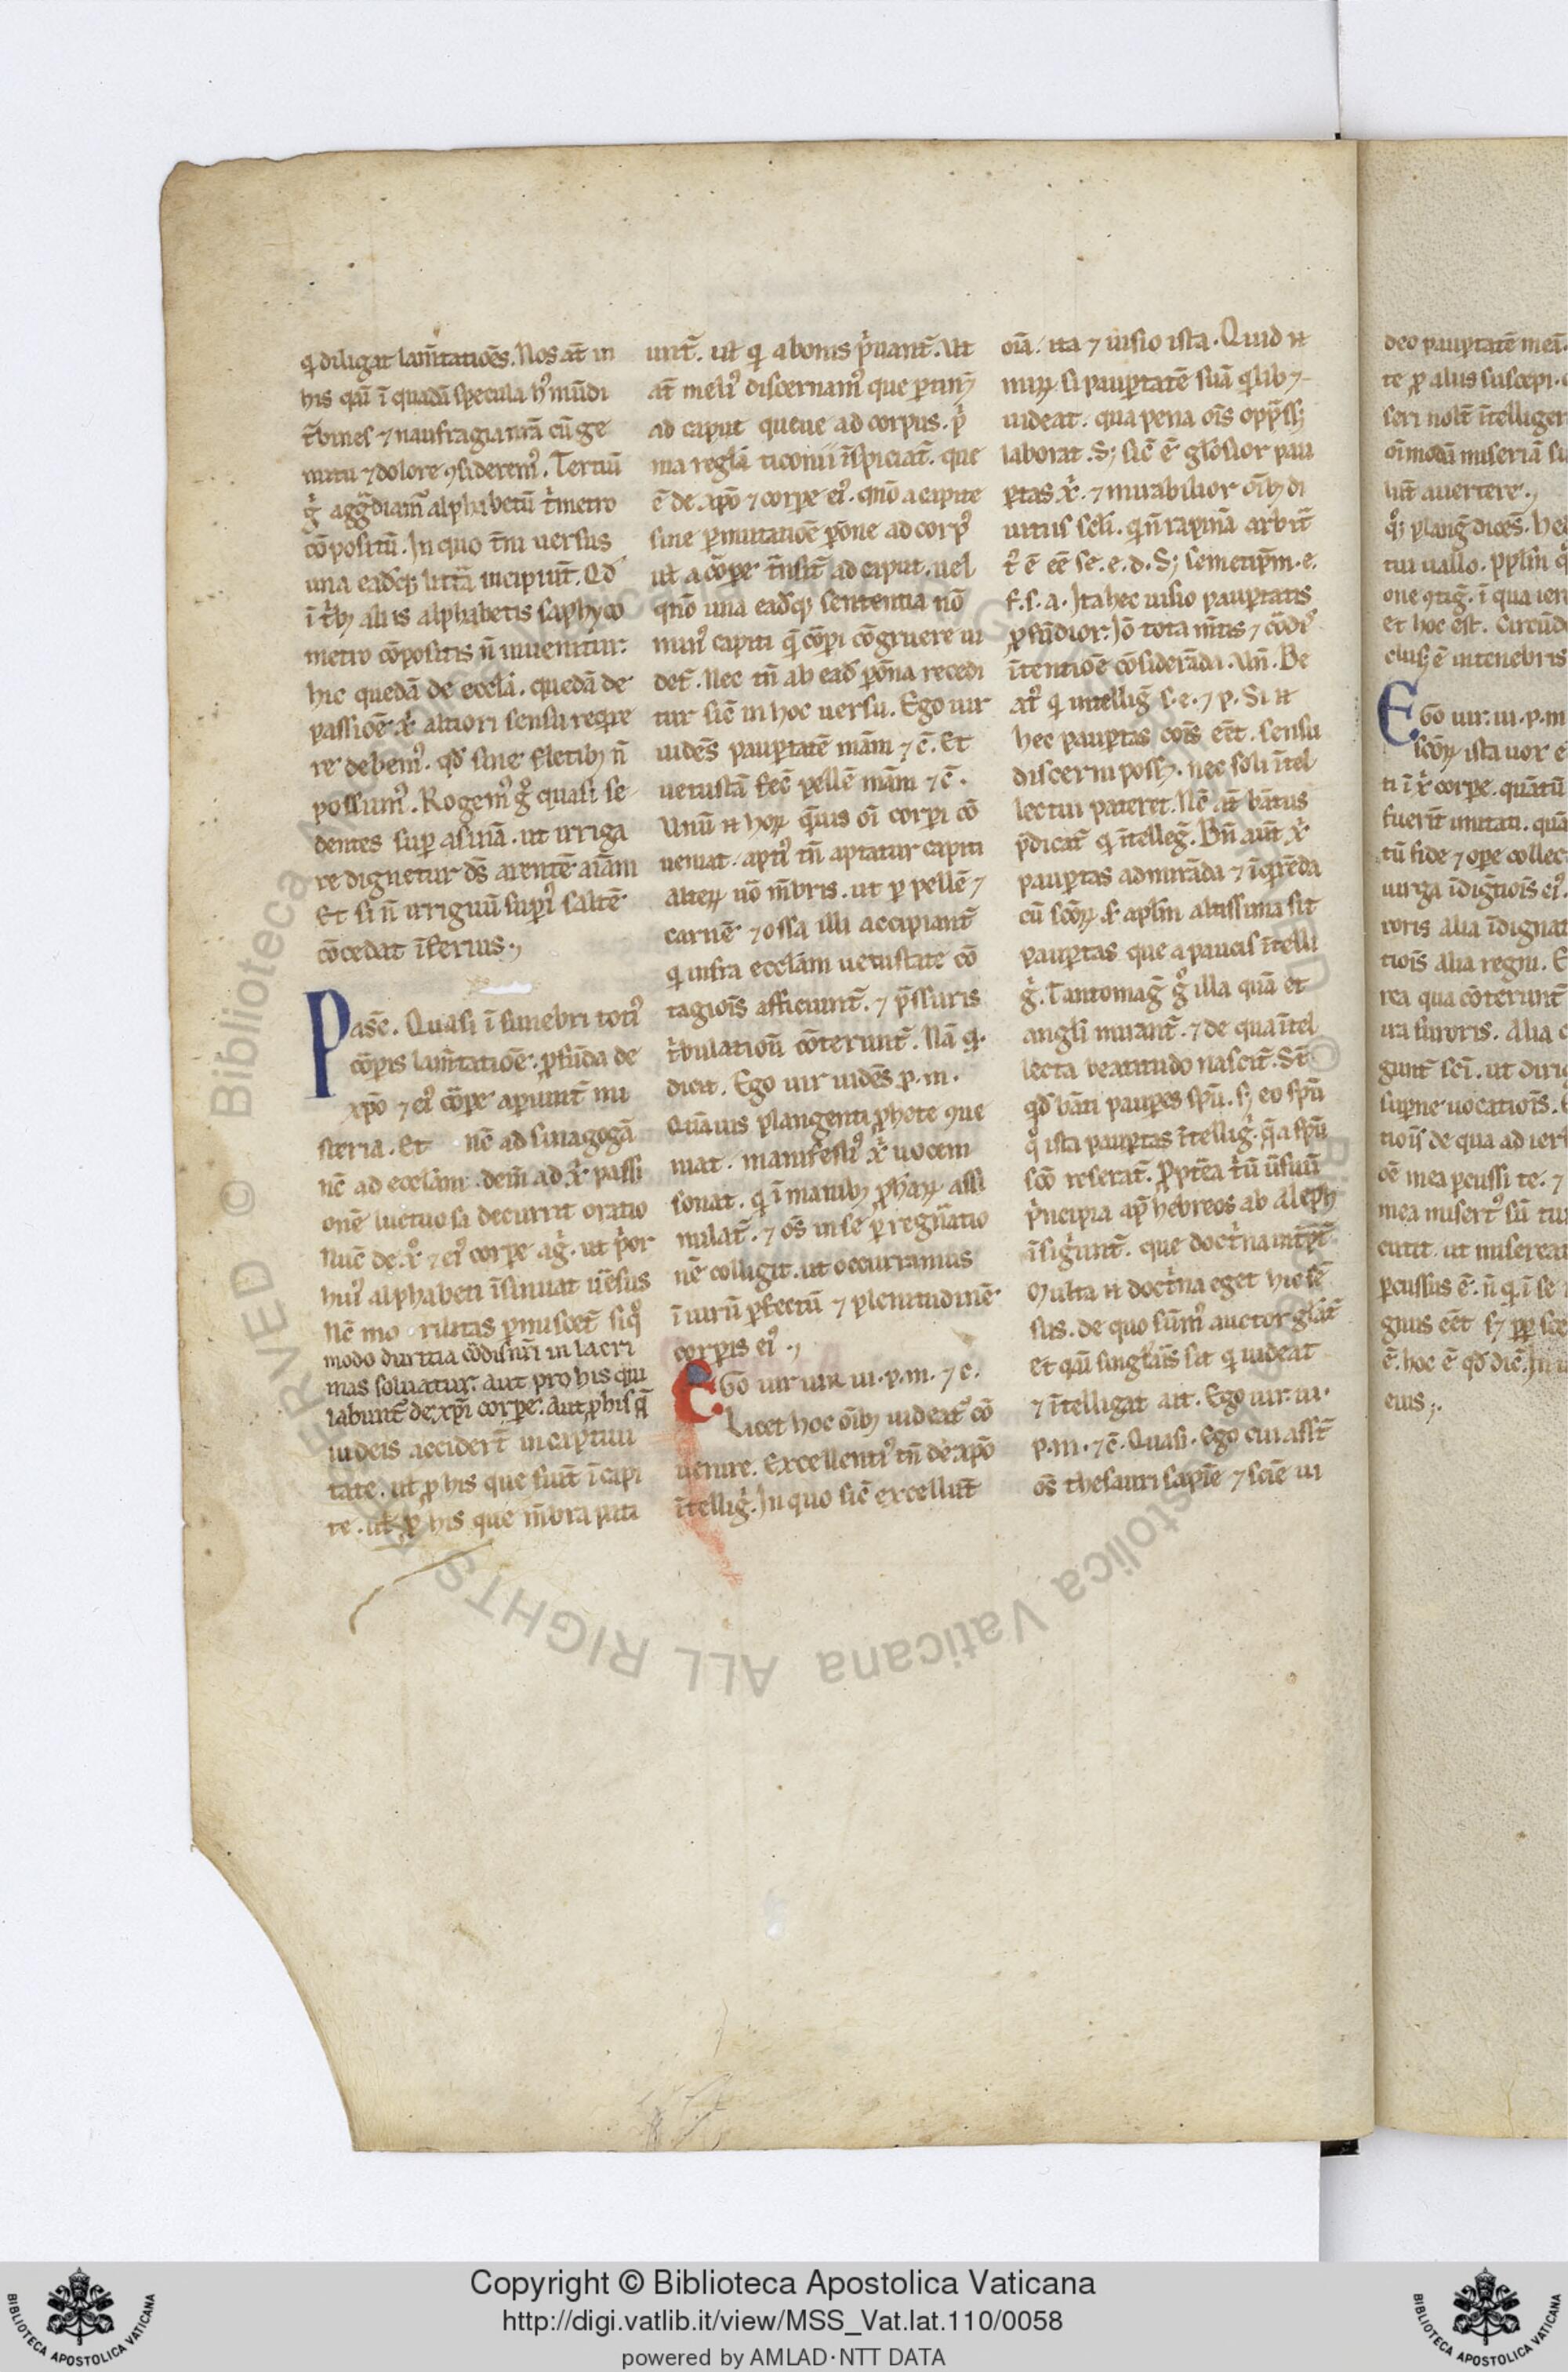 q diligat lam̄tatiōēs. Nos at̄ in
his qͣi ī quadā specula hꝰ mūdi
t̄bines ⁊ naufragia nr̄a cū ge
mitu ⁊ dolore ꝯsideremꝰ. Tertiū
gͥ aggͣdiam̄ alphabetū tͥmetro
cōpositū. In quo t̄ni uersus
una eadēqꝫ litt̄a incipiūt̄. Qd̄
ī tͥbꝫ aliis alphabetis saphyco
metro cōpositis n̄ inuenitur.
hic quedā de eccl̄ia. quedā de
passiōe xͥ altiori sensu reqͥre
re debemꝰ. qd̄ sine fletibꝫ n̄
possumꝰ. Rogemꝰ gͦ quasi se
dentes suꝑ asinā. ut irriga
re dignetur dn̄s arentē aīam
Et si n̄ irriguū supiꝰ saltē
cōcedat īferius.
Pasē. Quasi ī funebri totiꝰ
cōꝑis lam̄tatiōē. ꝓfūda de
xp̄o ⁊ eiꝰ cōꝑe aꝑiunt̄ mi
steria. Et nc̄ ad sinagogā
nc̄ ad eccl̄iam. dem̄ ad xͥ passi
onē luctuosa decurrit oratio
Nūc de xͦ ⁊ eiꝰ corꝑe agͥ. ut pͥor
huiꝰ alphabeti īsinuat uēsus
modo duritia cōdis nr̄i in lacri
mas soluatur. aut pro his qui
labunt̄ de xp̄i corꝑe. Aut ꝓ his q̄
iudeis accider̄t in captiui
tate. ul̄ ꝓ his que sūt ī capi
te. ul̄ ꝓ his que m̄bra pati
unt̄. ul̄ qͥ a bonis pͥuant̄. Ut
at̄ meliꝰ discernamꝰ que ꝑtinꝫ
ad caput queue ad corpus. pͥ
ma regl̄a ticonii īspiciat̄. que
ē de xp̄o ⁊ corꝑe eiꝰ. qn̄o a capite
sine ꝑmutatiōe ꝑsōne ad corpꝰ
ul̄ a cōꝑe t̄nsit̄ ad caput. uel
qn̄o una eadēqꝫ sententia nō
minꝰ capiti qͣ cōꝑi cōgruere ui
det̄. Nec tn̄ ab ead̄ ꝑsōna recedi
tur sic̄ in hoc uersu. Ego uir
uidēs pauꝑtatē mām ⁊ c̄. Et
uetustā fec̄ pellē mām ⁊ c̄.
Unū n̄ hoꝝ qͣuis oī corꝑi cō
ueniat. aptiꝰ tn̄ aptatur capiti
alteꝝ uō m̄bris. ut ꝑ pellē ⁊
carnē ⁊ ossa illi accipiant̄
q infra eccl̄am uetustate cō
tagiōis afficiunt̄. ⁊ p̄ssuris
tͥbulationū cōterunt̄. Nā qͥ.
dicit. Ego uir uidēs p. m.
Quāuis plangenti ꝓphete ꝯue
niat. manifestiꝰ xͥ uocem
sonat. q ī manibꝫ ꝓphaꝝ assi
milat̄. ⁊ oēs in se ꝑ regn̄atio
nē colligit. ut occurramus
ī uirū ꝑfectū ⁊ plenitudinē
corꝑis eiꝰ.
EGo uir ui. p. m. ⁊ c.
Licet hoc oīibꝫ uideat̄ cō
uenire. Excellentiꝰ tn̄ de xp̄o
ītelligͥ. In quo sic̄ excellūt
oīa. ita ⁊ uisio ista. Quid n̄
miꝝ. si pauꝑtatē suā qͥlibꝫ
uideat. qua pena oīs opp̄ssꝫ
laborat. Sꝫ sic̄ ē gl̄osior pau
ꝑtas xͥ. ⁊ mirabilior oīibꝫ di
uitiis scl̄i. qͥ n̄ rapinā arbit̄
tꝰ ē eē se. e. d. Sꝫ semetip̄m. e.
f. s. a. Ita hec uisio pauꝑtatis
ꝓfūdior. Iō tota m̄tis ⁊ cōdiꝰ
ītentiōe cōsiderāda. Un̄. Be
atꝰ qͥ intelligͥ s. e. ⁊ p. Si n̄
hec pauꝑtas cōis eēt. sensu
discerni possꝫ. nec soli ītel
lectui pateret. Nc̄ at̄ bātus
p̄dicat̄ qͥ ītellegͥ. Bn̄ aūt xͥ
pauꝑtas admirāda ⁊ īqͥrēda
cū sc̄oꝝ ⁊ apl̄oꝝ altissima sit
pauꝑtas que a paucis ītelli
gͥ. Tantomagͥ gͦ illa quā et
angl̄i mirant̄. ⁊ de qua ītel
lecta beatitudo nascit̄. St̄
qd̄ bāti pauꝑes spū. sꝫ eo spū
qͦ ista pauꝑtas ītelligͥ. qͣ a spū
sc̄o reserat̄. Ꝓpt̄ea tͥū ūsuū
pͥncipia apͩ hebreos ab Aleph
īsigͥunt̄. que doctͥna intp̄t̄
Multa n̄ doctͥna eget hic sē
sus. de quo sūmꝰ auctor gl̄at̄
et qͣi singl̄aris sit qͥ uideat
⁊ ītelligat ait. Ego uir. ui.
p. m. ⁊ c̄. Quasi. Ego cui asst̄
oēs thesauri sapīe ⁊ sciē ui
deo pauꝑtatē meā.
te ꝓ aliis suscepi.
seri nolt̄ ītelliger
oīmodā miseriā su
lūt auertere.
qꝰ; plangͥ dicēs. he
tui uallo.
one ꝯtigͥ. ī qua ien
et hoc est. Circūd
eiusꝫ ē in tenebris
EGo uir. ui. p. m
sc̄oꝝ ista uox ē
ti ī xͥ corꝑe. quātū
fuer̄t unitati. quā
tū fide ⁊ oꝑe collec
uirga īdigͣtiōis eiꝰ.
roris alia īdignat
tiōis alia regni. E
rea qua cōterunt̄
ira furoris. Alia
gunt̄ sc̄i. ut diri
suꝑne uocatiōis.
tiōis de qua ad ier
oē mea ꝑcussi te. ⁊
mea misertꝰ sū tui
cutit. ut miserea
ꝑcussus ē. n̄ qͥ ī se
gnus eēt sꝫ ꝓꝑ
ē. hoc ē qd̄ dic̄. In
eius.
Copyright © Biblioteca Apostolica Vaticana
http://digi.vatlib.it/view/MSS_Vat.lat.110/0058
powered by AMLAD·NTT DATA
BIBLIOTECA APOSTOLICA VATICANA
BIBLIOTECA APOSTOLICA VATICANA
Biblioteca Apostolica Vaticana ALL RIGHTS RESERVED © Biblioteca Apostolica Vaticana